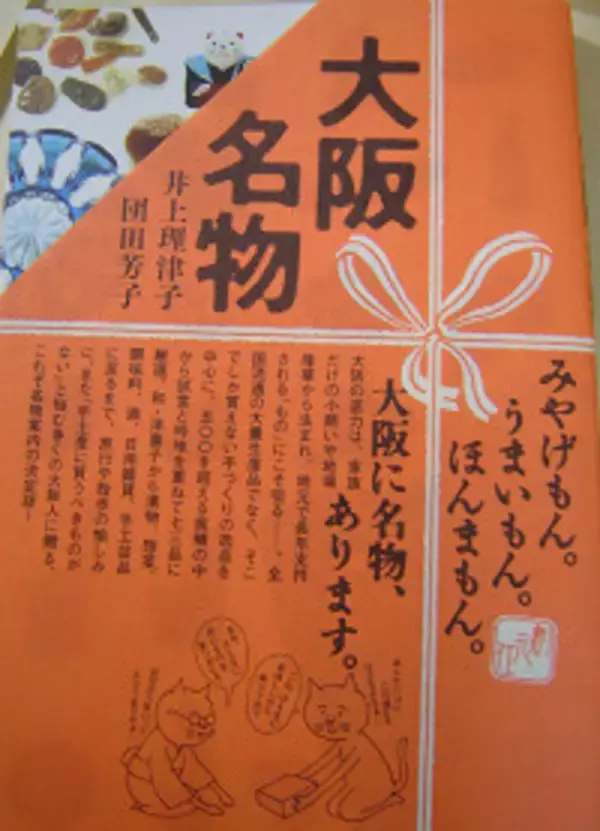 大阪
名物
井上理津子
団田芳子
みやげもん。
うまいもん。
ほんまもん。
大阪に名物、
あります。
大阪の底力は、家族
だけの小商いや地場
産業から生まれ、地元で長年支持
される「もの」にこそ宿る——。全
国流通の大量生産品でなく、そこ
でしか買えない手づくりの逸品を
中心に、五〇〇を超える候補の中
から試食と吟味を重ねて七三品に
厳選。和・洋菓子から漬物、惣菜、
調味料、酒、日用雑貨、手工芸品
に至るまで、
ない」と悩む多くの大阪人に贈る、
これぞ名物案内の決定版!